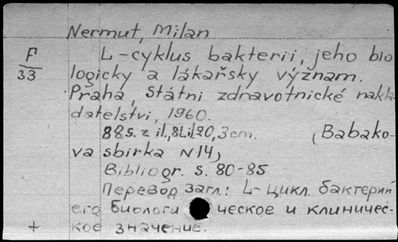 Nermut, Milan
F/33 L-cyklus bakterii, jeho bio
logicky a lákařsky význam.
Praha, Státni zdravotnické nakla
datelstvi, 1960.
88s. z il, 8Lil 20,3cm. (Babako-
va sbirka N14)
Bibliogr. s. 80-85
Перевод загл.: L-цикл бактерий
его биологи ческое и клиничес-
+ кое значение.